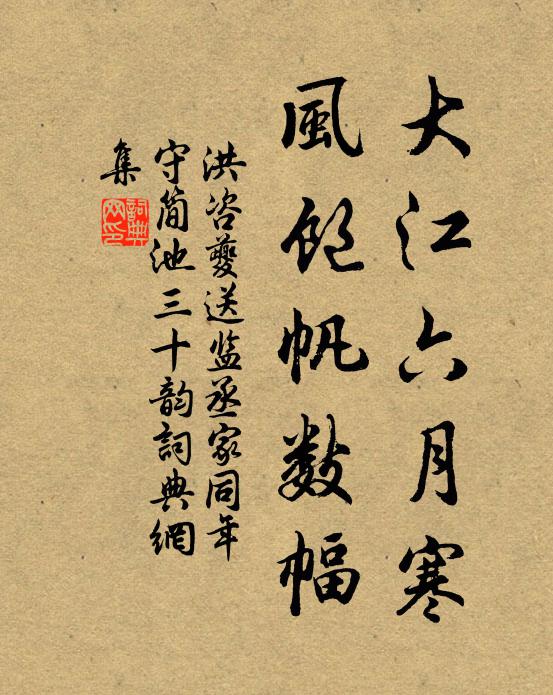 大江六月寒
風飽帆数幅
洪咨夔送监丞家同年
守简池三十韵詞典網
集
詞典網印